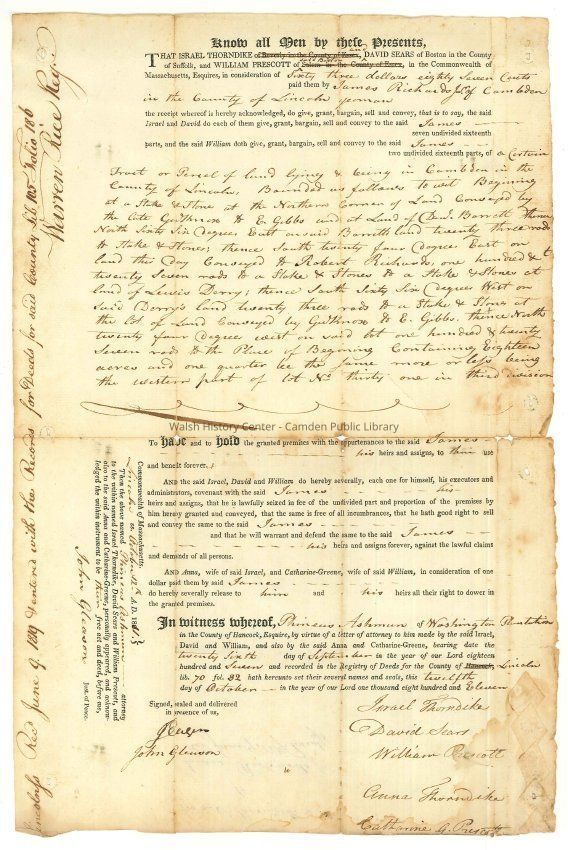 Know all Men by these Presents,
THAT ISRAEL THORNDIKE of Beverly in the County of Essex, and DAVID SEARS of Boston in the County
of Suffolk, and WILLIAM PRESCOTT of said Boston Salem in the County of Essex, in the Commonwealth of
Massachusetts, Esquires, in consideration of Sixty three dollars eighty Seven Cents
paid them by James Richards of Cambden
in the County of Lincoln yeoman
the receipt whereof is hereby acknowledged, do give, grant, bargain, sell and convey, that is to say, the said
Israel and David do each of them give, grant, bargain, sell and convey to the said James
seven undivided sixteenth
parts, and the said William doth give, grant, bargain, sell and convey to the said James
two undivided sixteenth parts, of a Certain
Tract or Parcel of land lying & being in Cambden in the
County of Lincoln, Bounded as follows to wit Begining
at a Stake & Stone at the Northern Corner of Land Conveyed by
the late & E. Gibbs and at Land of Barrett thence
North Sixty Six Degrees East on said Barretts land twenty three rods
to Stake & Stones, thence South twenty four Degrees East on
land this Day Conveyed to Robert Richards, one hundred &
twenty Seven rods to a Stake & Stones to a Stake & Stones at
land of Lewis Derry; thence South Sixty Six Degrees West on
said Derry's land twenty three rods to a Stake & Stone at
the lot of Land Conveyed by & E. Gibbs. thence North
twenty four Degrees west on said lot one hundred & twenty
Seven rods to the Place of Begining Containing Eighteen
acres and one quarter be the same more or less being
the western part of lot No. thirty one in third division
Walsh History Center - Camden Public Library
To have and to hold the granted premises with the appurtenances to the said James
his heirs and assigns, to their use
and benefit forever.
AND the said Israel, David and William do hereby severally, each one for himself, his executors and
administrators, covenant with the said James his
heirs and assigns, that he is lawfully seized in fee of the undivided part and proportion of the premises by
him hereby granted and conveyed, that the same is free of all incumbrances, that he hath good right to sell
and convey the same to the said James
and that he will warrant and defend the same to the said James
his heirs and assigns forever, against the lawful claims
and demands of all persons.
AND Anna, wife of said Israel, and Catharine-Greene, wife of said William, in consideration of one
dollar paid them by said James
do hereby severally release to him and his heirs all their right to dower in
the granted premises.
In witness whereof, Ashmun of Washington Plantation
in the County of Hancock, Esquire, by virtue of a letter of attorney to him made by the said Israel,
David and William, and also by the said Anna and Catharine-Greene, bearing date the
twenty Sixth day of September in the year of our Lord eighteen
hundred and Seven and recorded in the Registry of Deeds for the County of Hancock, Lincoln
lib. 70 fol. 32 hath hereunto set their several names and seals, this twelfth
day of October in the year of our Lord one thousand eight hundred and Eleven
Signed, sealed and delivered
in presence of us,
John Gleason
Israel Thorndike
David Sears
William Prescott
Anna Thorndike
Catharine G. Prescott
Commonwealth of Massachusetts.
Lincoln ss October 12th A.D. 1811
Then the above named Ashmun attorney
to the within named Israel Thorndike, David Sears and William Prescott, and
also to the said Anna and Catharine-Greene, personally appeared, and acknow-
ledged the within instrument to be free act and deed, before me,
John Gleason
Just. of Peace.
Lincoln ss Recd June 9. & enterd with the Records for Deeds for said County Lib 105 Folio 186
Warren Rice Reg.